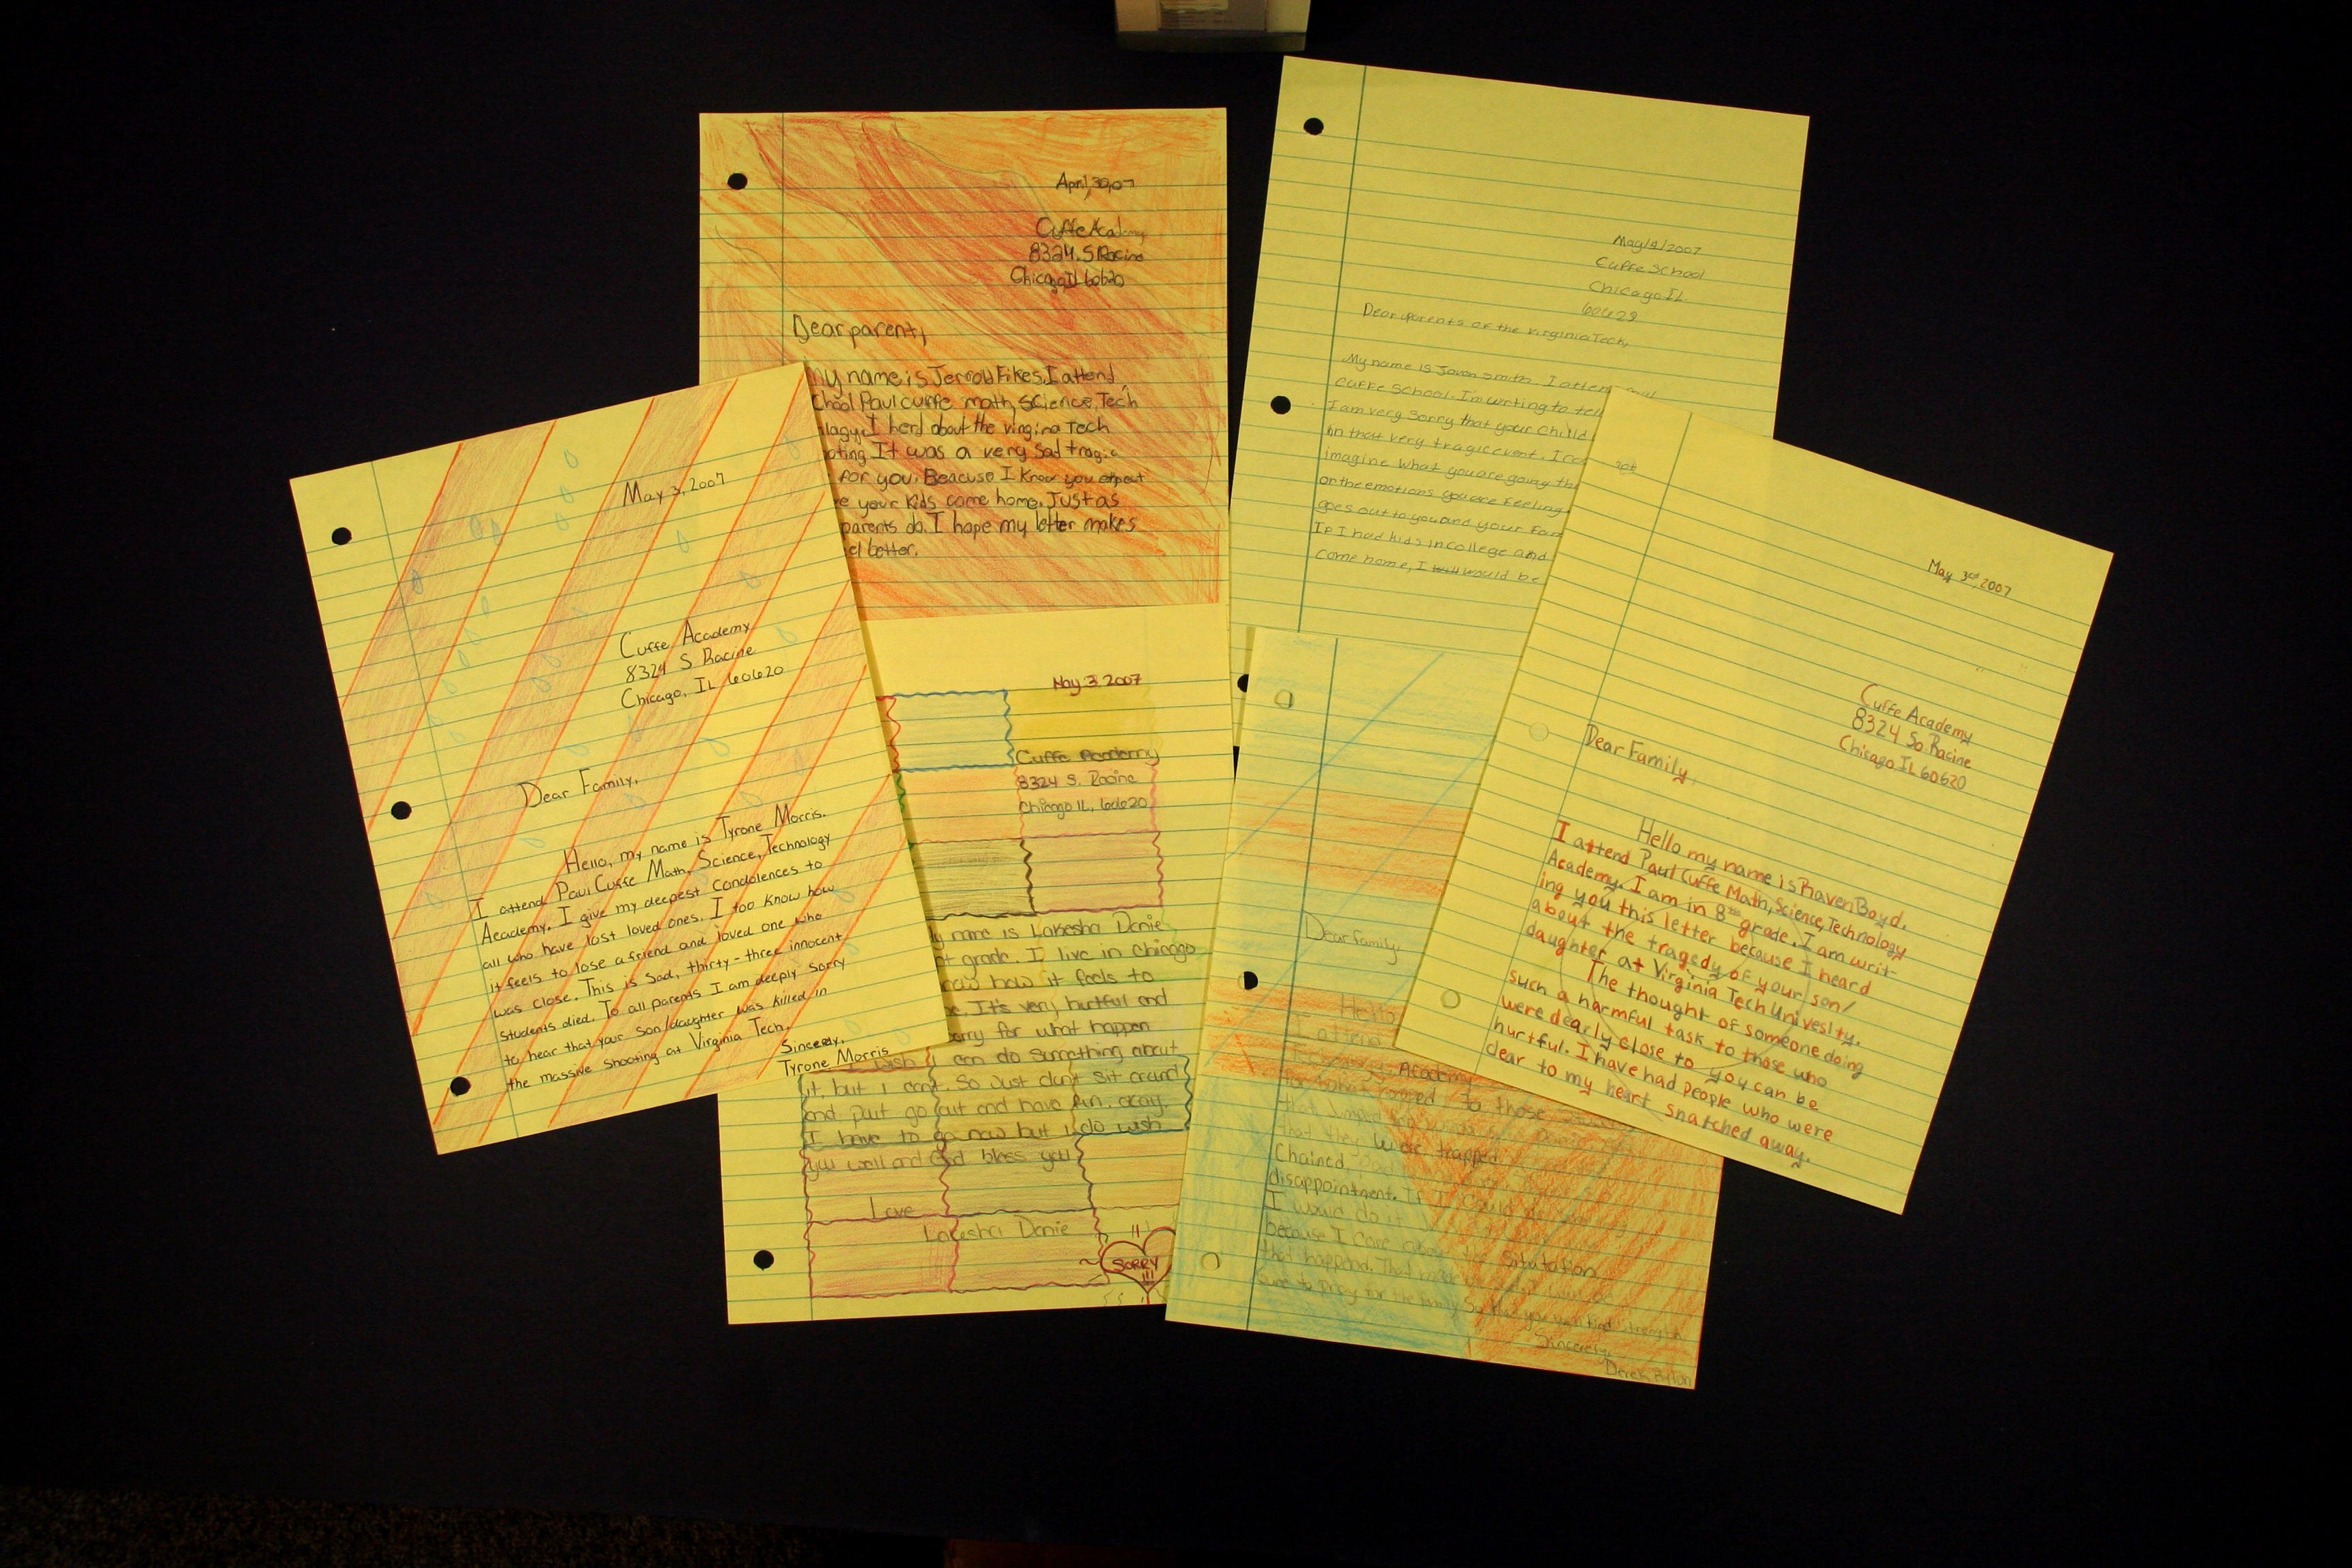 April,30,07
Cuffe Academy
8324. S Racine
Chicago IL 60620
Dear parent,
My name is Jerrold Fikes. I attend
chool Paul cuffe math, science, Tech
lagy. I herd about the virgina Tech
oting It was a very sad tragic
for you. Beacuse I know you expect
e your kids come home. Just as
parents do. I hope my letter makes
el better.
May/4/2007
Cuffe school
Chicago IL
Dear parents of the virginia Tech,
My name is Javon Smith. I atten
cuffe school. I'm writing to tell
I am very sorry that your child
in that very tragic event. I co
imagine what you are going th
or the emotions you are feeling
goes out to you and your fam
If I had kids in college and
come home, I will would be
May 3, 2007
Cuffe Academy
8324 S Racine
Chicago, IL 60620
Dear Family,
Hello, my name is Tyrone Morris.
I attend Paul Cuffe Math, Science, Technology
Academy. I give my deepest condolences to
all who have lost loved ones. I too know how
it feels to lose a friend and loved one who
was close. This is sad, thirty-three innocent
students died. To all parents I am deeply sorry
to hear that your son/daughter was killed in
the massive shooting at Virginia Tech.
Sincerely,
Tyrone Morris
May 3, 2007
Cuffe Academy
8324 S. Racine
Chicago IL, 60620
y name is Lakesha Danie
grade. I live in Chicago
now how it feels to
e. It's very hurtful and
orry for what happen
I wish I can do something about
it, but I cant. So Just don't sit around
and pout go out and have fun. okay.
I have to go now but I do wish
you well and God bless you
Love
Lakesha Danie
SORRY
!!!
May 3rd, 2007
Cuffe Academy
8324 So. Racine
Chicago IL 60620
Dear Family,
Hello my name is Raven Boyd.
I attend Paul Cuffe Math, Science, Technology
Academy. I am in 8th grade. I am writ-
ing you this letter because I heard
about the tragedy of your son/
daughter at Virginia Tech Univesity.
The thought of someone doing
such a harmful task to those who
were dearly close to you can be
hurtful. I have had people who were
dear to my heart snatched away.
Dear family,
Hello
I attend
Technology Academy
to those
that they were trapped
Chained,
disappointment. If I could
I would do it
because I care about the situtation
that happened. That
sure to pray for the family So that you can find strength
Sincerely,
Derek